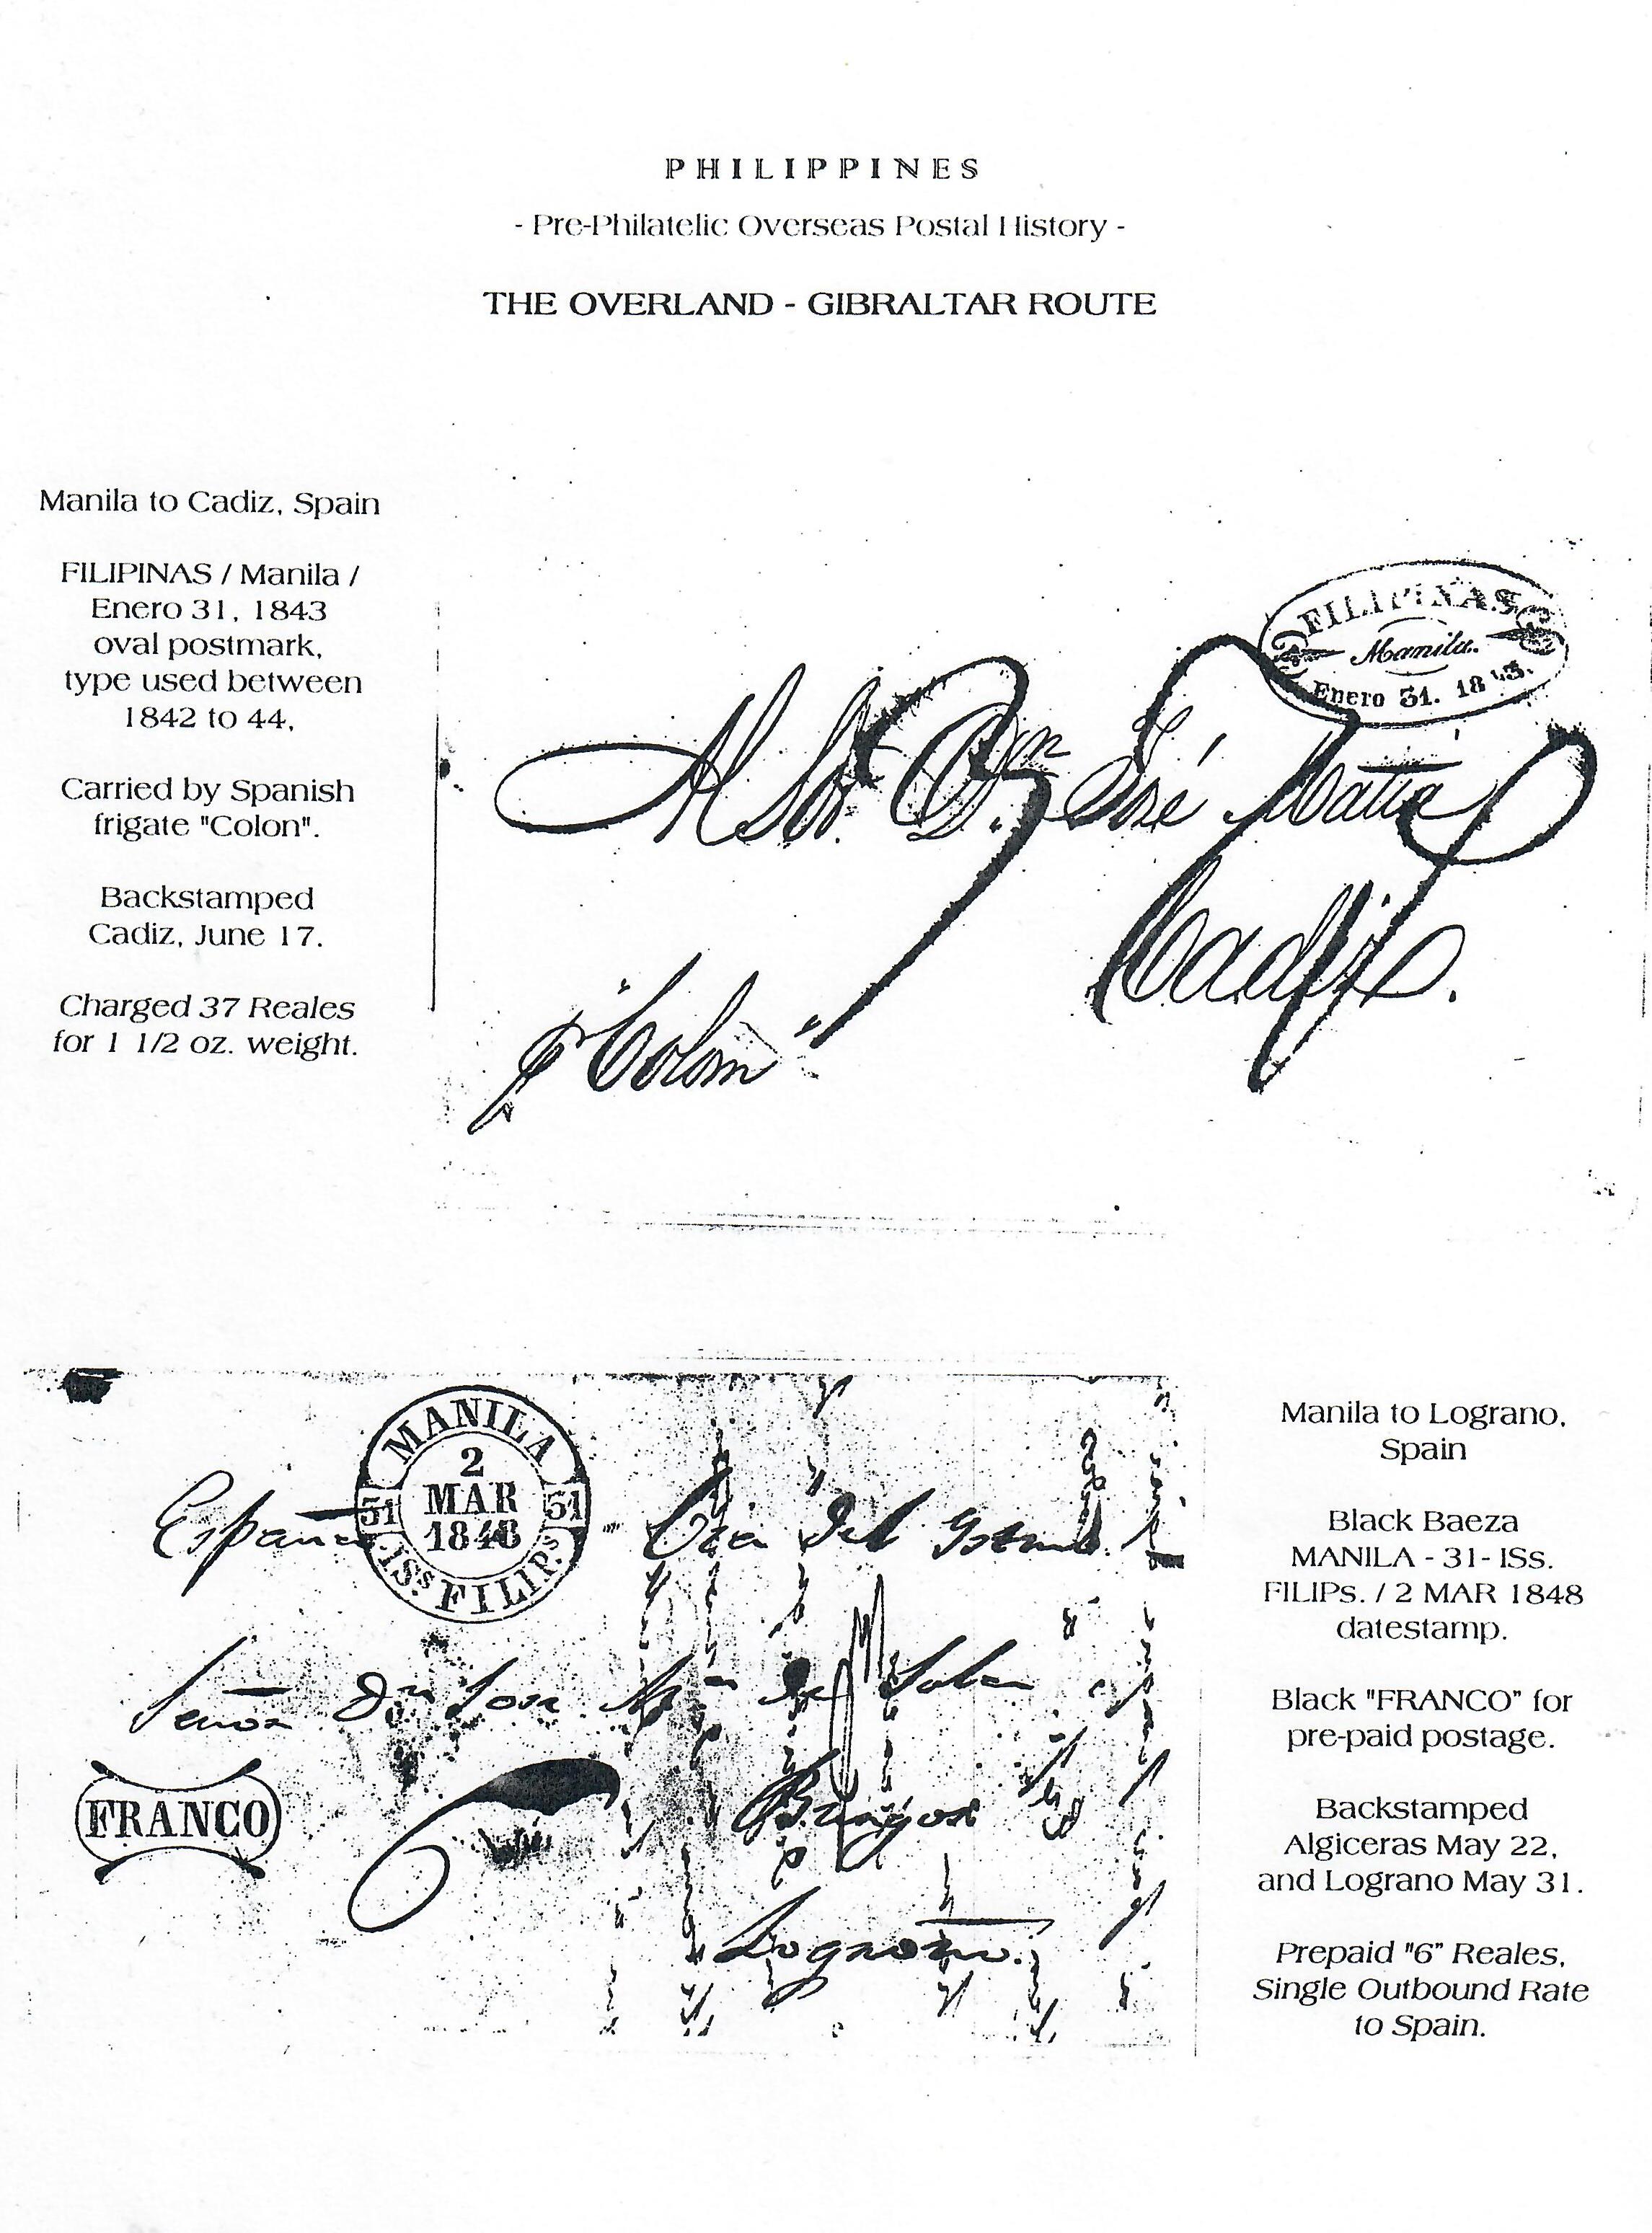 PHILIPPINES
- Pre-Philatelic Overseas Postal History -
THE OVERLAND - GIBRALTAR ROUTE
Manila to Cadiz, Spain
FILIPINAS / Manila /
Enero 31, 1843
oval postmark,
type used between
1842 to 44,
Carried by Spanish
frigate "Colon".
Backstamped
Cadiz, June 17.
Charged 37 Reales
for 1 1/2 oz. weight.
FILIPINAS
Manila.
Enero 31. 1843.
Al Sor. Dn. José Matia
Cadiz.
p "Colon"
MANILA
2
MAR
1848
31 31
ISs FILIPs
España - Via del Istmo
Señor Dn Jose Ma de
Burgos
Logroño.
FRANCO
Manila to Lograno,
Spain
Black Baeza
MANILA - 31- ISs.
FILIPs. / 2 MAR 1848
datestamp.
Black "FRANCO" for
pre-paid postage.
Backstamped
Algiceras May 22,
and Lograno May 31.
Prepaid "6" Reales,
Single Outbound Rate
to Spain.